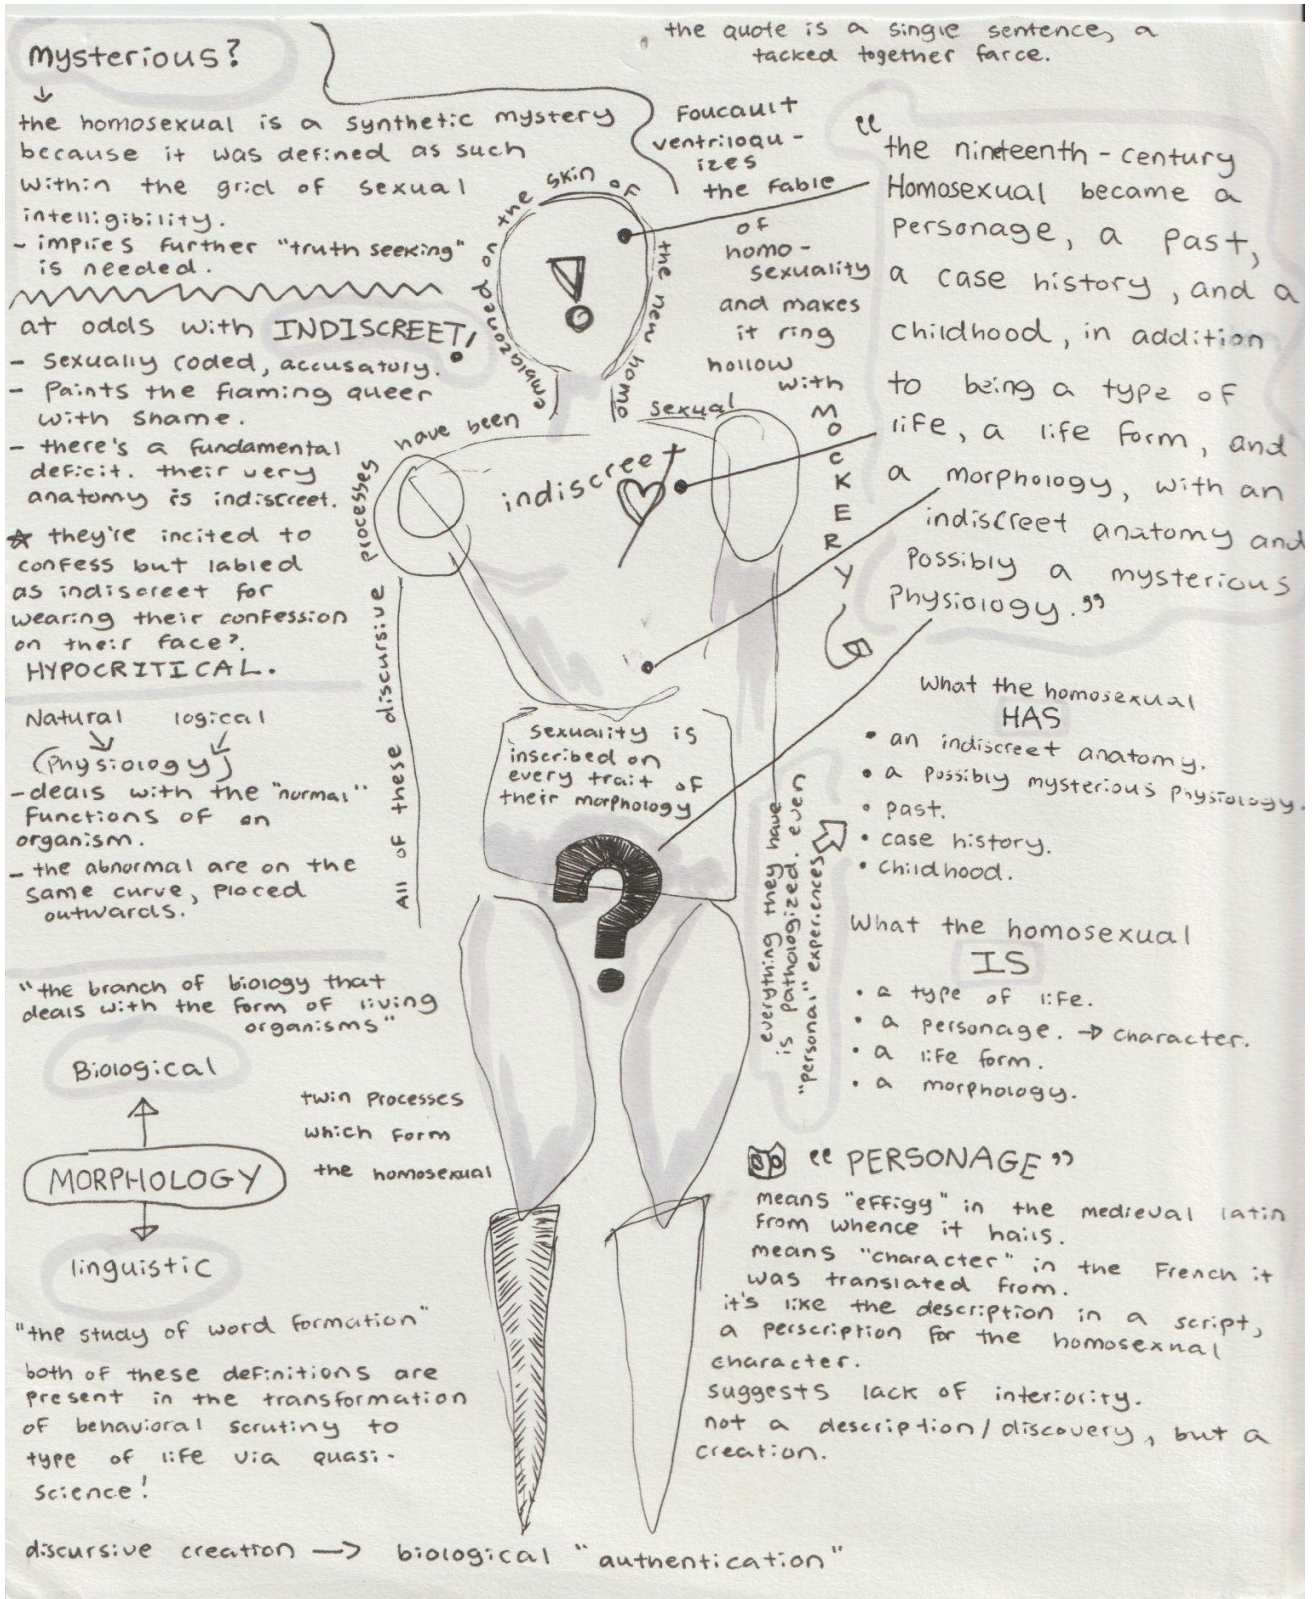 mysterious?
the homosexual is a synthetic mystery
because it was defined as such
within the grid of sexual
intelligibility.
- implies further "truth seeking"
is needed.
at odds with INDISCREET!
- sexually coded, accusatory.
- paints the flaming queer
with shame.
- there's a fundamental
deficit. their very
anatomy is indiscreet.
☆ they're incited to
confess but labled
as indiscreet for
wearing their confession
on their face?
HYPOCRITICAL.
Natural logical
(Physiology)
- deals with the "normal"
functions of an
organism.
- the abnormal are on the
same curve, placed
outwards.
"the branch of biology that
deals with the form of living
organisms"
Biological
MORPHOLOGY
linguistic
twin processes
which form
the homosexual
"the study of word formation"
both of these definitions are
present in the transformation
of behavioral scrutiny to
type of life via quasi-
science!
discursive creation → biological "authentication"
All of these discursive processes
have been
emblazoned on the skin of
the new homo
sexual
!
indiscreet
sexuality is
inscribed on
every trait of
their morphology
?
everything they have
is pathologized. even
"personal" experiences
the quote is a single sentence, a
tacked together farce.
Foucault
ventriloqu-
izes
the fable
of
homo-
sexuality
and makes
it ring
hollow
with
MOCKERY
"the nineteenth-century
Homosexual became a
personage, a past,
a case history, and a
childhood, in addition
to being a type of
life, a life form, and
a morphology, with an
indiscreet anatomy and
possibly a mysterious
physiology."
What the homosexual
HAS
• an indiscreet anatomy.
• a possibly mysterious physiology.
• past.
• case history.
• childhood.
What the homosexual
IS
• a type of life.
• a personage. → character.
• a life form.
• a morphology.
"PERSONAGE"
means "effigy" in the medieval latin
from whence it hails.
means "character" in the French it
was translated from.
it's like the description in a script,
a perscription for the homosexual
character.
suggests lack of interiority.
not a description/discovery, but a
creation.